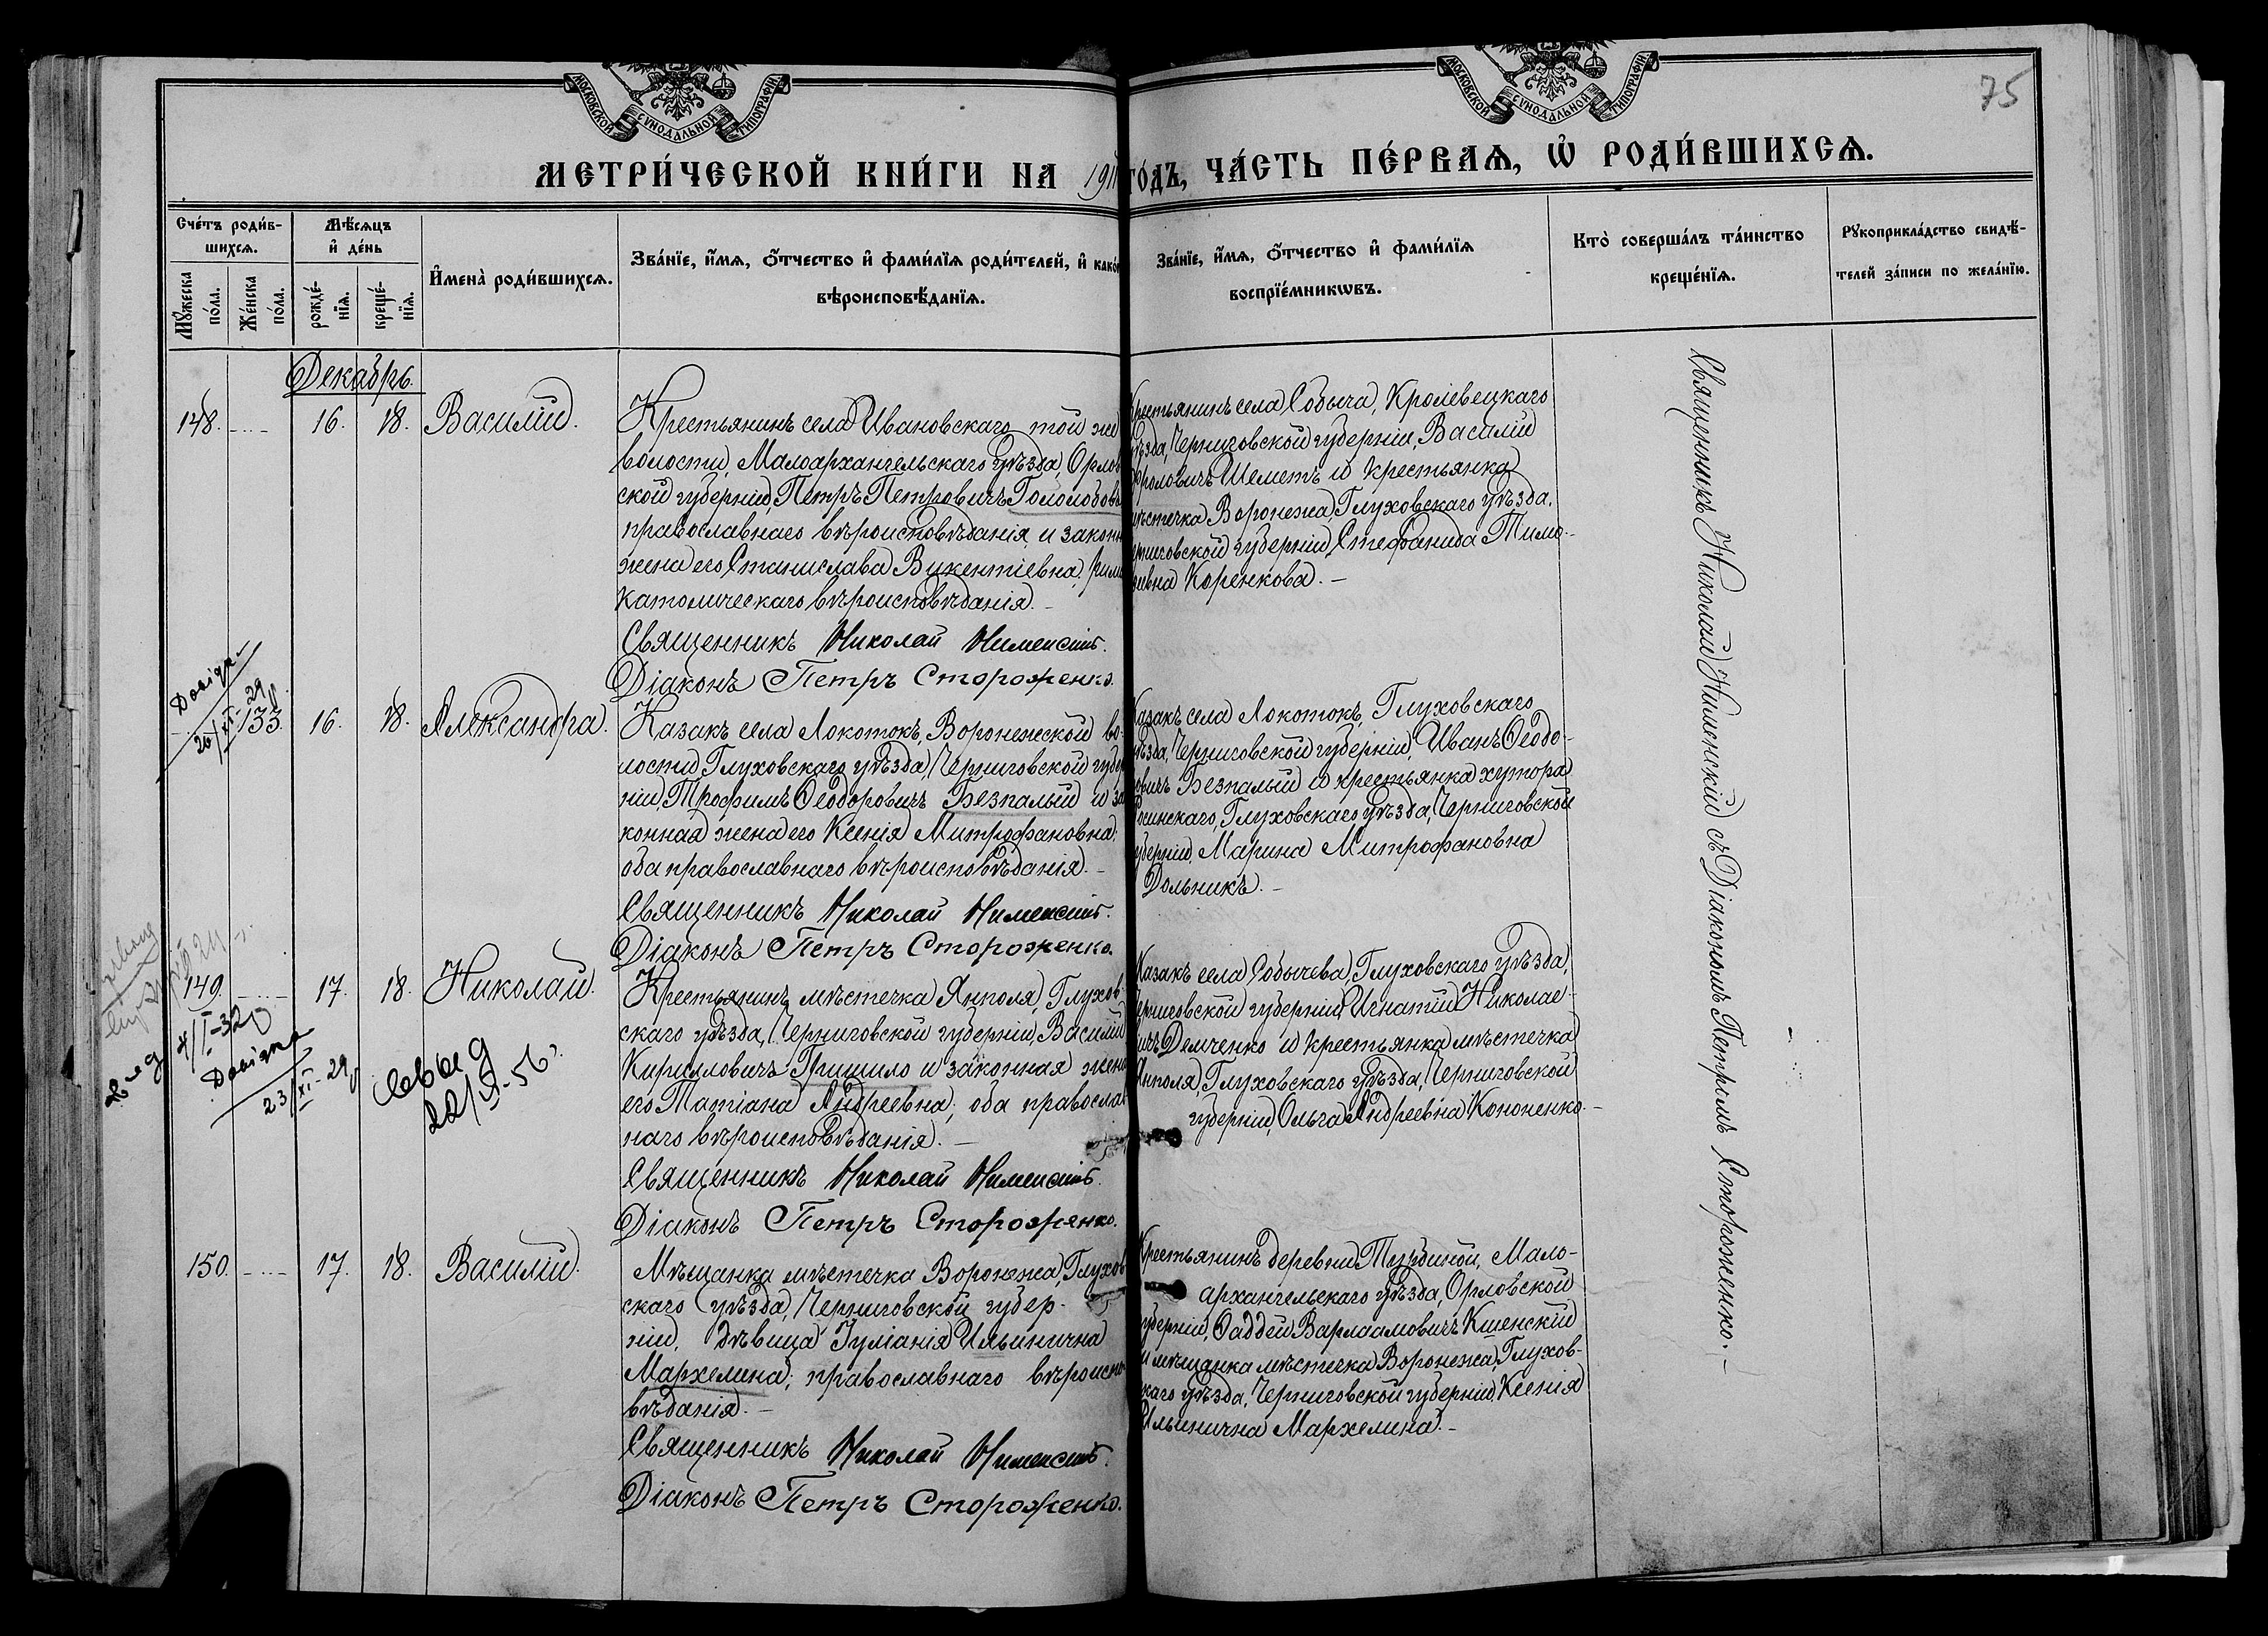 МОСКОВСКОЙ СѴНОДАЛЬНОЙ ТИПОГРАФІИ
МОСКОВСКОЙ СѴНОДАЛЬНОЙ ТИПОГРАФІИ
75
МЕТРИ́ЧЕСКОЙ КНИ́ГИ НА 191 ГО́ДЪ, ЧА́СТЬ ПЕ́РВАѦ, Ѡ҆ РОДИ́ВШИХСѦ.
Сче́тъ роди́в-
шихсѧ.
Мꙋ́жеска по́ла.
Же́нска по́ла.
Мѣ́сѧцъ
и҆ де́нь
рожде́-
нїѧ.
креще́-
нїѧ.
И҆мена̀ роди́вшихсѧ.
Зва́нїе, и҆́мѧ, ѻ҆́тчество и҆ фами́лїѧ роди́телей, и҆ како́
вѣроисповѣ́данїѧ.
Зва́нїе, и҆́мѧ, ѻ҆́тчество и҆ фами́лїѧ
воспрїе́мникѡвъ.
Кто̀ соверша́лъ та́инство
креще́нїѧ.
Рꙋкоприкла́дство свидѣ́-
телей за́писи по жела́нїю.
Декабрь.
148. 16. 18. Василій.
Крестьянинъ села Ивановскаго той же
волости, Малоархангельскаго уѣзда, Орлов
ской губерніи, Петръ Петровичъ Гололобовъ
православнаго вѣроисповѣданія и законн
жена его Станислава Викентіевна, рим
католическаго вѣроисповѣданія.
Священникъ Николай Нименскій.
Діаконъ Петръ Стороженко.
крестьянинъ села Собыча, Кролевецкаго
уѣзда, Черниговской губерніи, Василій
Фроловичъ Шеметъ и крестьянка
мѣстечка Воронежа, Глуховскаго уѣзда,
Черниговской губерніи, Стефанида Тимо-
ѳеевна Коренкова.
Довідка
26/XI-29
133. 16. 18. Александра.
Казакъ села Локотокъ, Воронежской во-
лости, Глуховскаго уѣзда, Черниговской губер
ніи, Трофимъ Ѳеодоровичъ Безпалый и за
конная жена его Ксенія Митрофановна;
оба православнаго вѣроисповѣданія.
Священникъ Николай Нименскій.
Діаконъ Петръ Стороженко.
Казакъ села Локотокъ, Глуховскаго
уѣзда, Черниговской губерніи, Иванъ Ѳеодо-
ровичъ Безпалый и крестьянка хутора
Глуховскаго уѣзда, Черниговской
губерніи, Марина Митрофановна
Дольникъ.
149. 17. 18. Николай.
4/I-32
Довідка
23/XI-29
22/VI-56
Крестьянинъ мѣстечка Янполя, Глухов-
скаго уѣзда, Черниговской губерніи, Василій
Кирилловичъ Гришило и законная жена
его Татіана Андреевна; оба православ
наго вѣроисповѣданія.
Священникъ Николай Нименскій.
Діаконъ Петръ Стороженко.
Казакъ села Собычева, Глуховскаго уѣзда,
Черниговской губерніи, Игнатій Николае-
вичъ Демченко и крестьянка мѣстечка
Янполя, Глуховскаго уѣзда, Черниговской
губерніи, Ольга Андреевна Кононенко.
150. 17. 18. Василій.
Мѣщанка мѣстечка Воронежа, Глухов
скаго уѣзда, Черниговской губер-
ніи, дѣвица Іуліанія Ильинична
Мархелина; православнаго вѣроиспо
вѣданія.
Священникъ Николай Нименскій.
Діаконъ Петръ Стороженко.
Крестьянинъ деревни Турбиной, Мало-
архангельскаго уѣзда, Орловской
губерніи, Ѳаддей Варлаамовичъ Кшенскій
и мѣщанка мѣстечка Воронежа, Глухов-
скаго уѣзда, Черниговской губерніи, Ксенія
Ильинична Мархелина.
Священникъ Николай Нименскій съ Діакономъ Петромъ Стороженко.